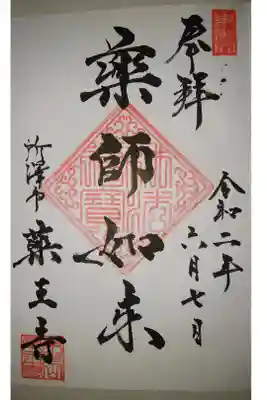 奉拜
令和二年
六月七日
薬師如来
所澤市
薬王寺